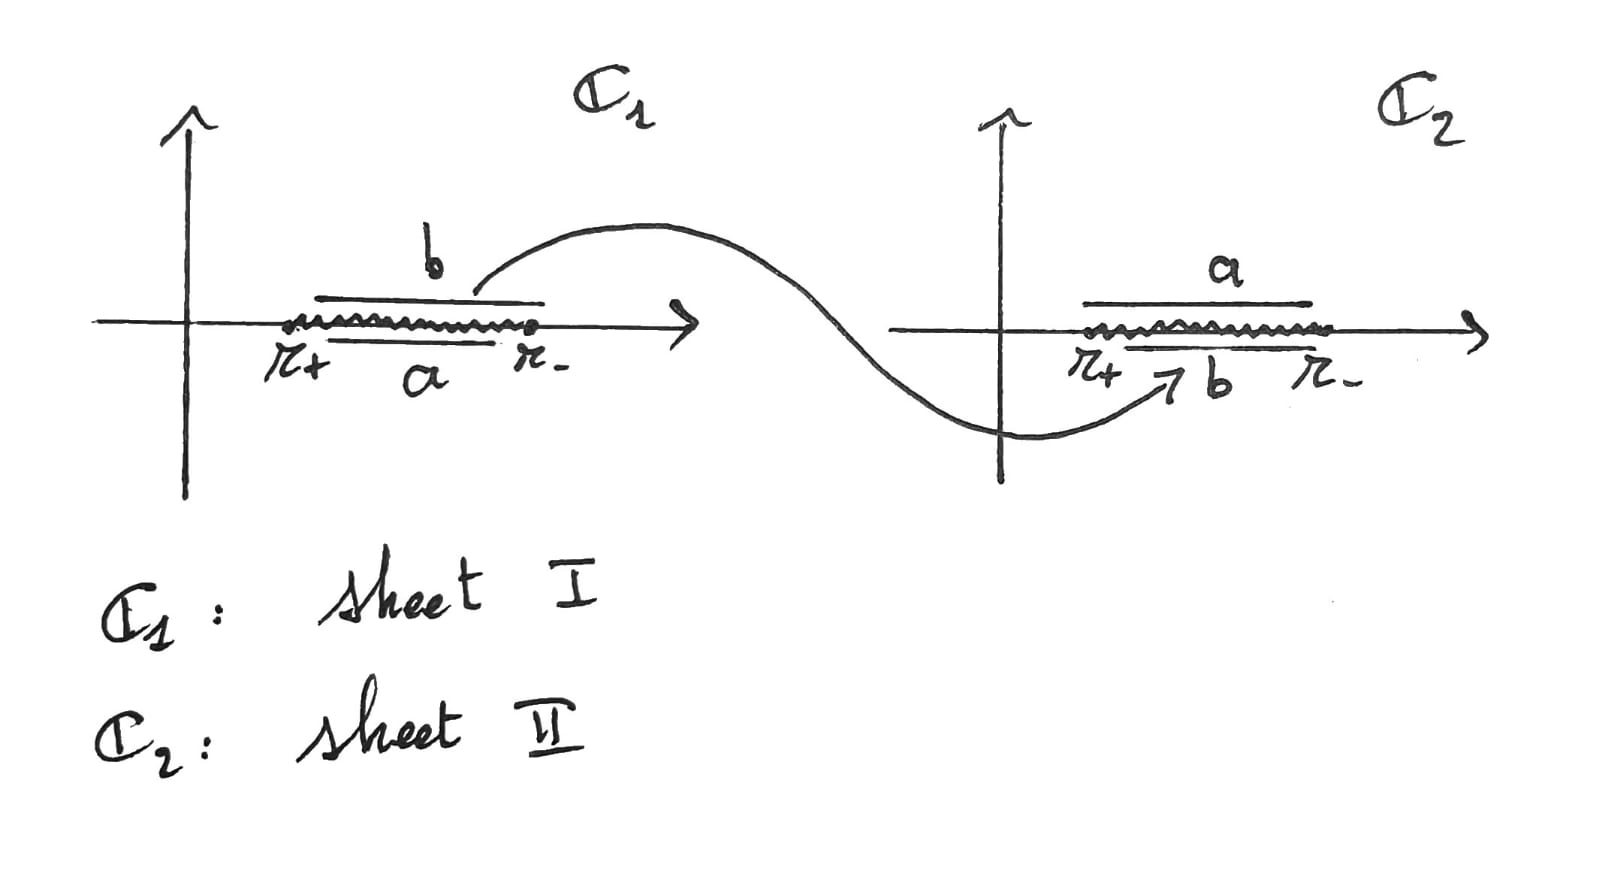 ℂ₁ ℂ₂
b a
r₊ a r₋ r₊ b r₋
ℂ₁ : sheet I
ℂ₂ : sheet II